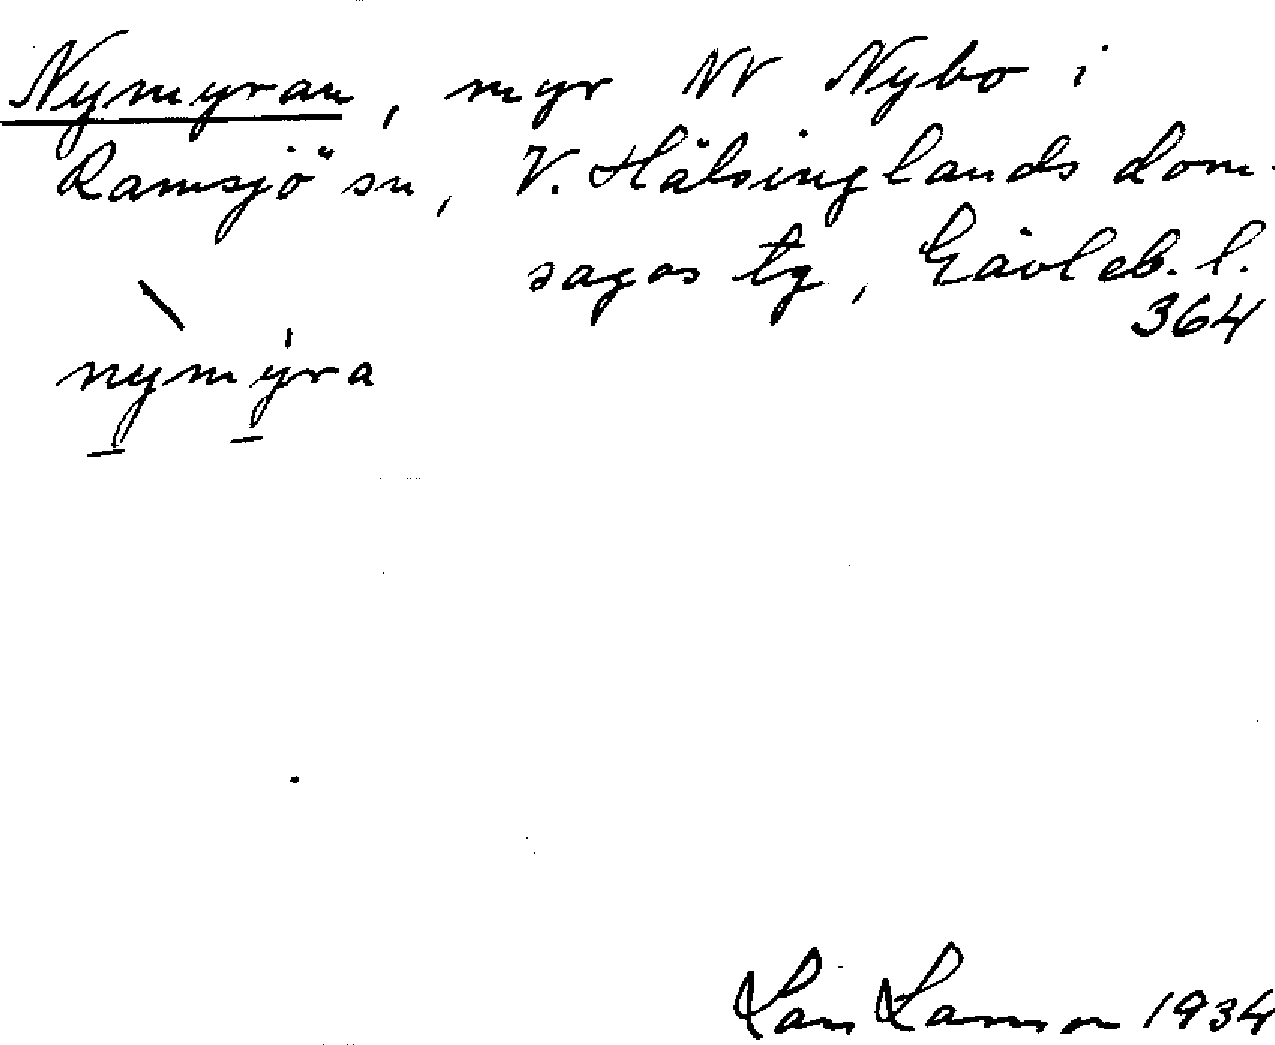 Nymyran, myr NV Nybo i
Ramsjö sn, V. Hälsinglands dom-
sagas tg, Gävleb. l.
364
nymyra
Lars Larsson 1934